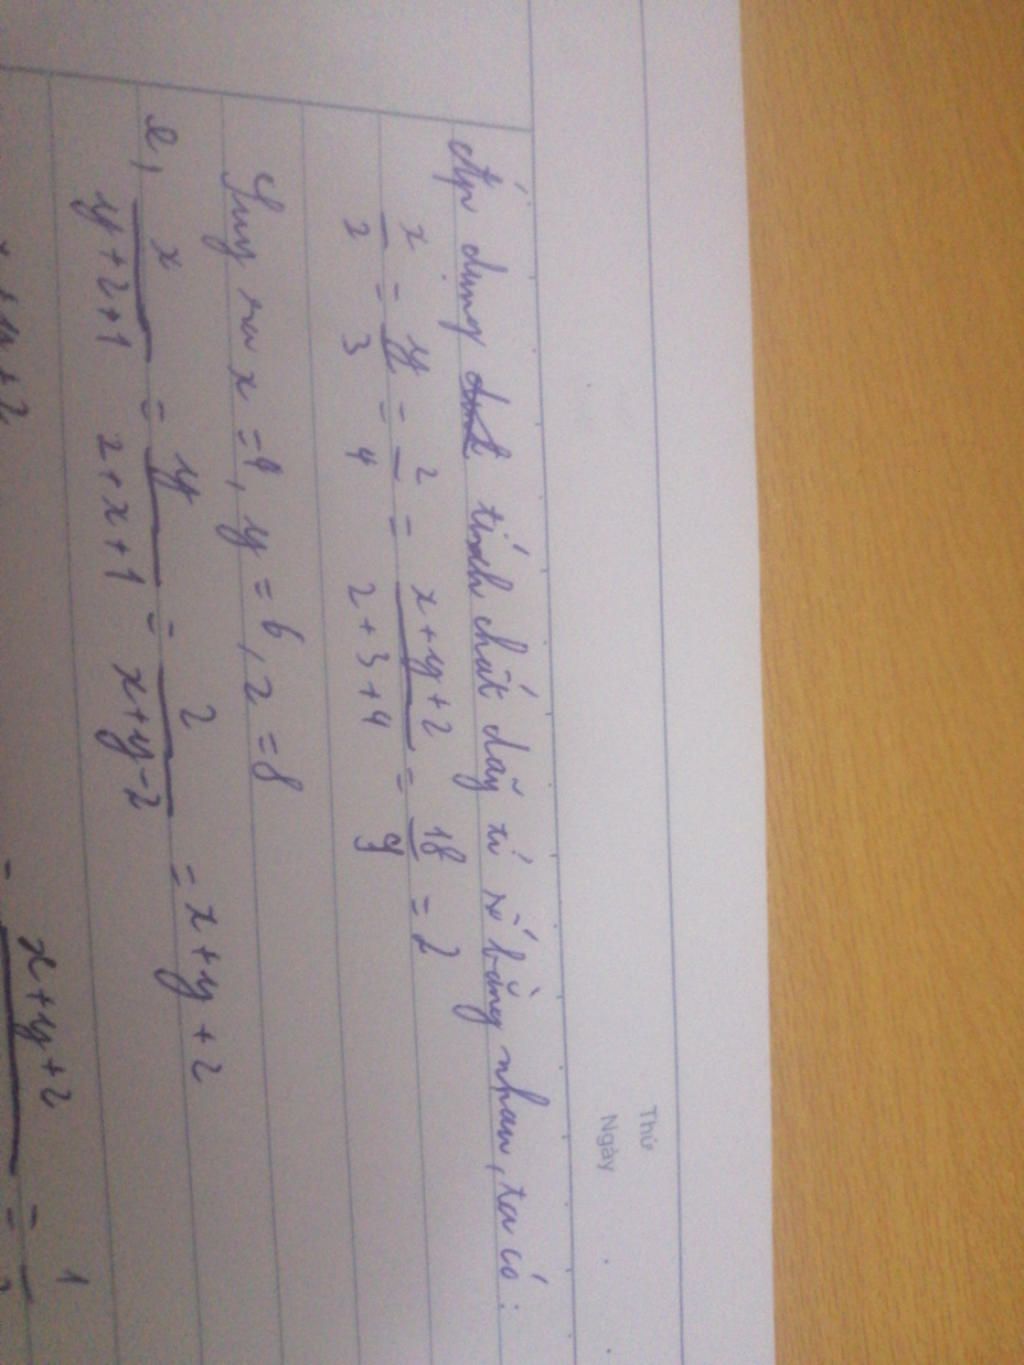 Thứ
Ngày
Áp dụng tính chất dãy tỉ số bằng nhau, ta có:
x/2 = y/3 = z/4 = x+y+z/2+3+4 = 18/9 = 2
Suy ra x = 4, y = 6, z = 8
e, x/y+z+1 = y/z+x+1 = z/x+y-2 = x+y+z
x+y+z = 1